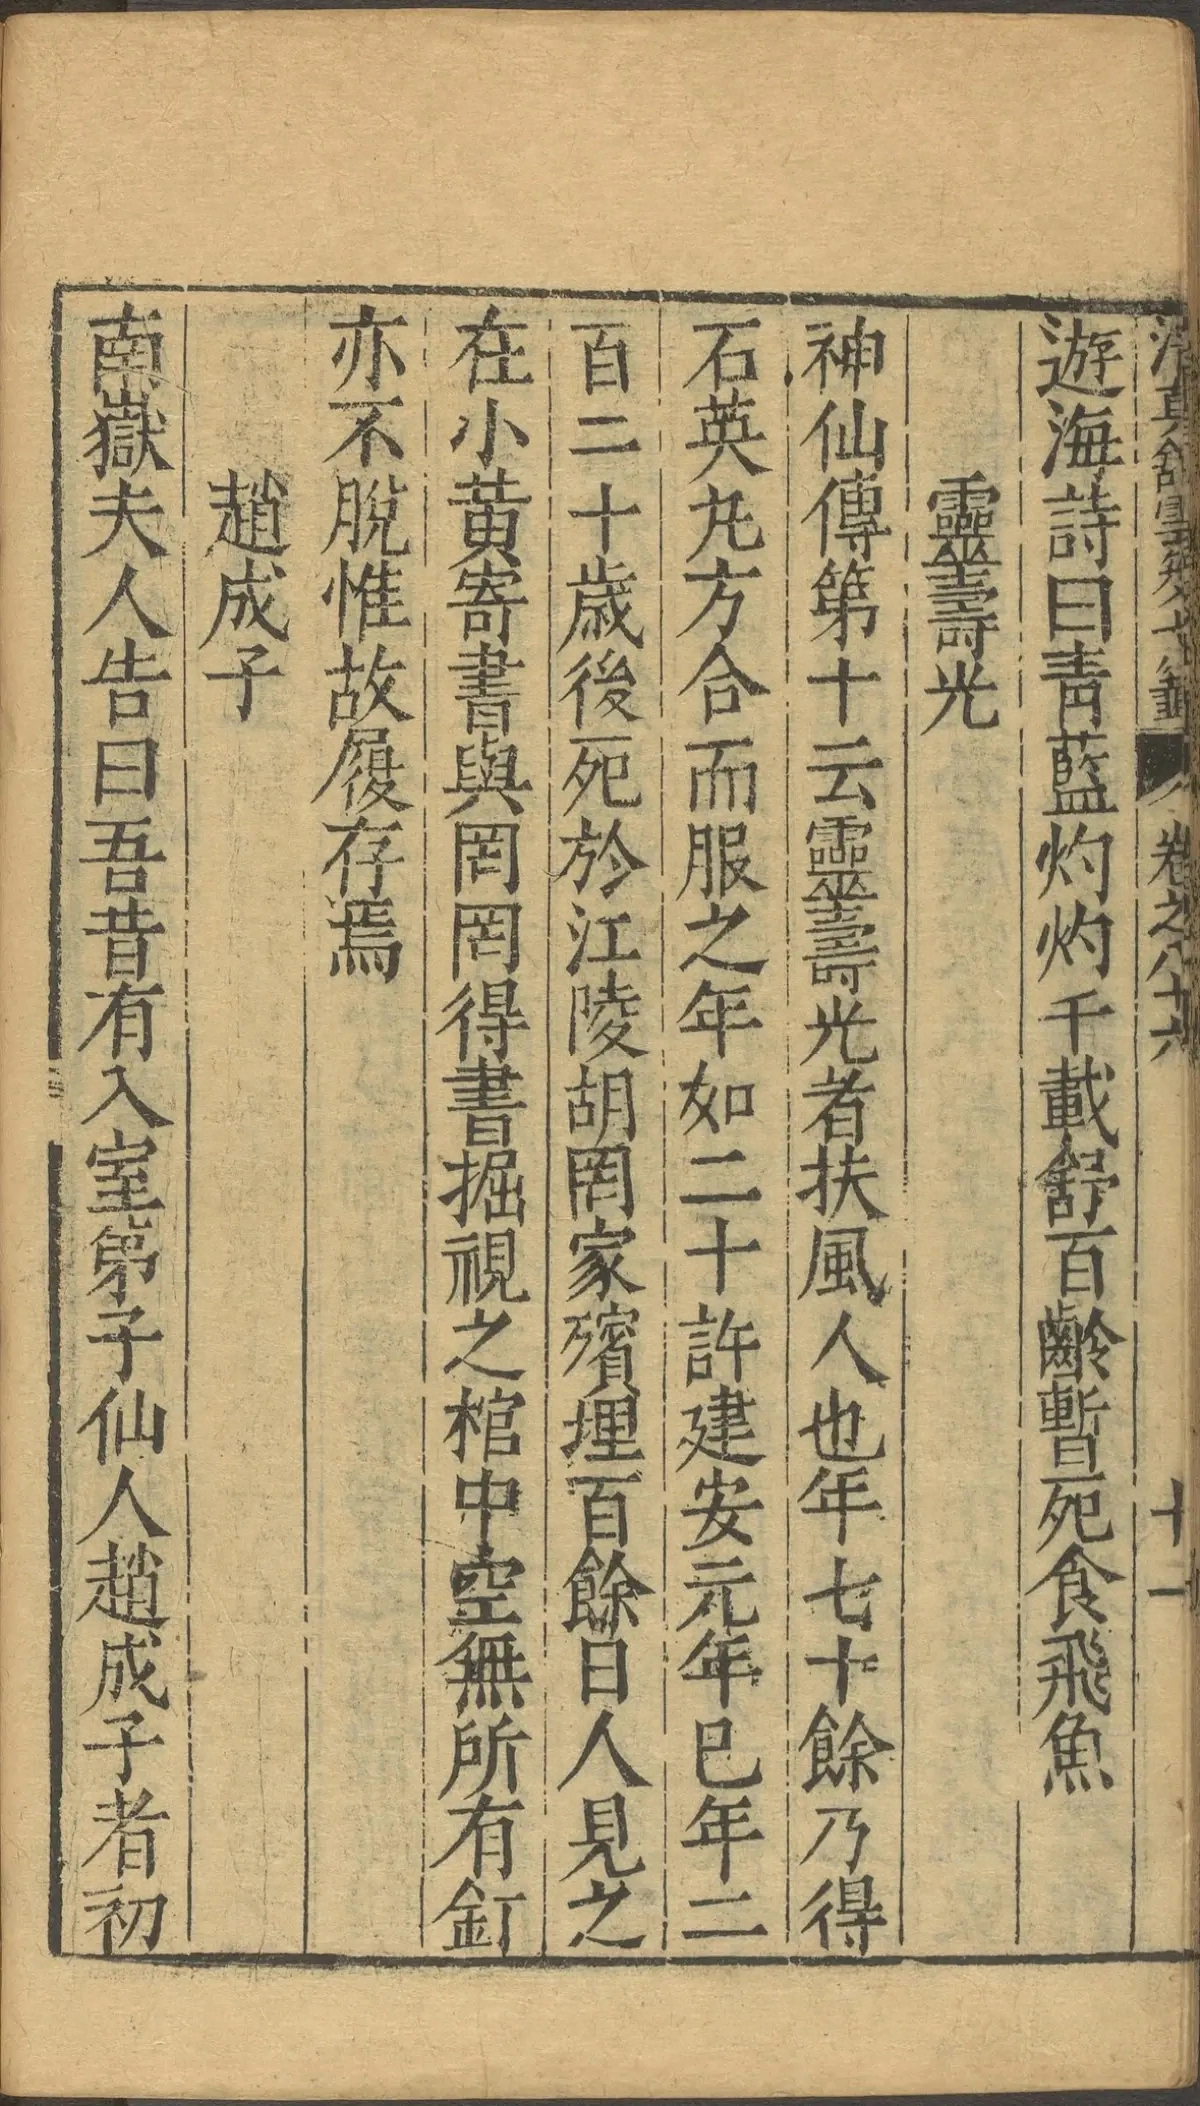 卷之八十六 十一
遊海詩曰靑藍灼灼千載舒百齡暫死食飛魚
靈壽光
神仙傳第十云靈壽光者扶風人也年七十餘乃得
石英丸方合而服之年如二十許建安元年巳年二
百二十歲後死於江陵胡罔家殯埋百餘日人見之
在小黃寄書與罔罔得書掘視之棺中空無所有釘
亦不脫惟故履存焉
趙成子
南嶽夫人告曰吾昔有入室弟子仙人趙成子者初